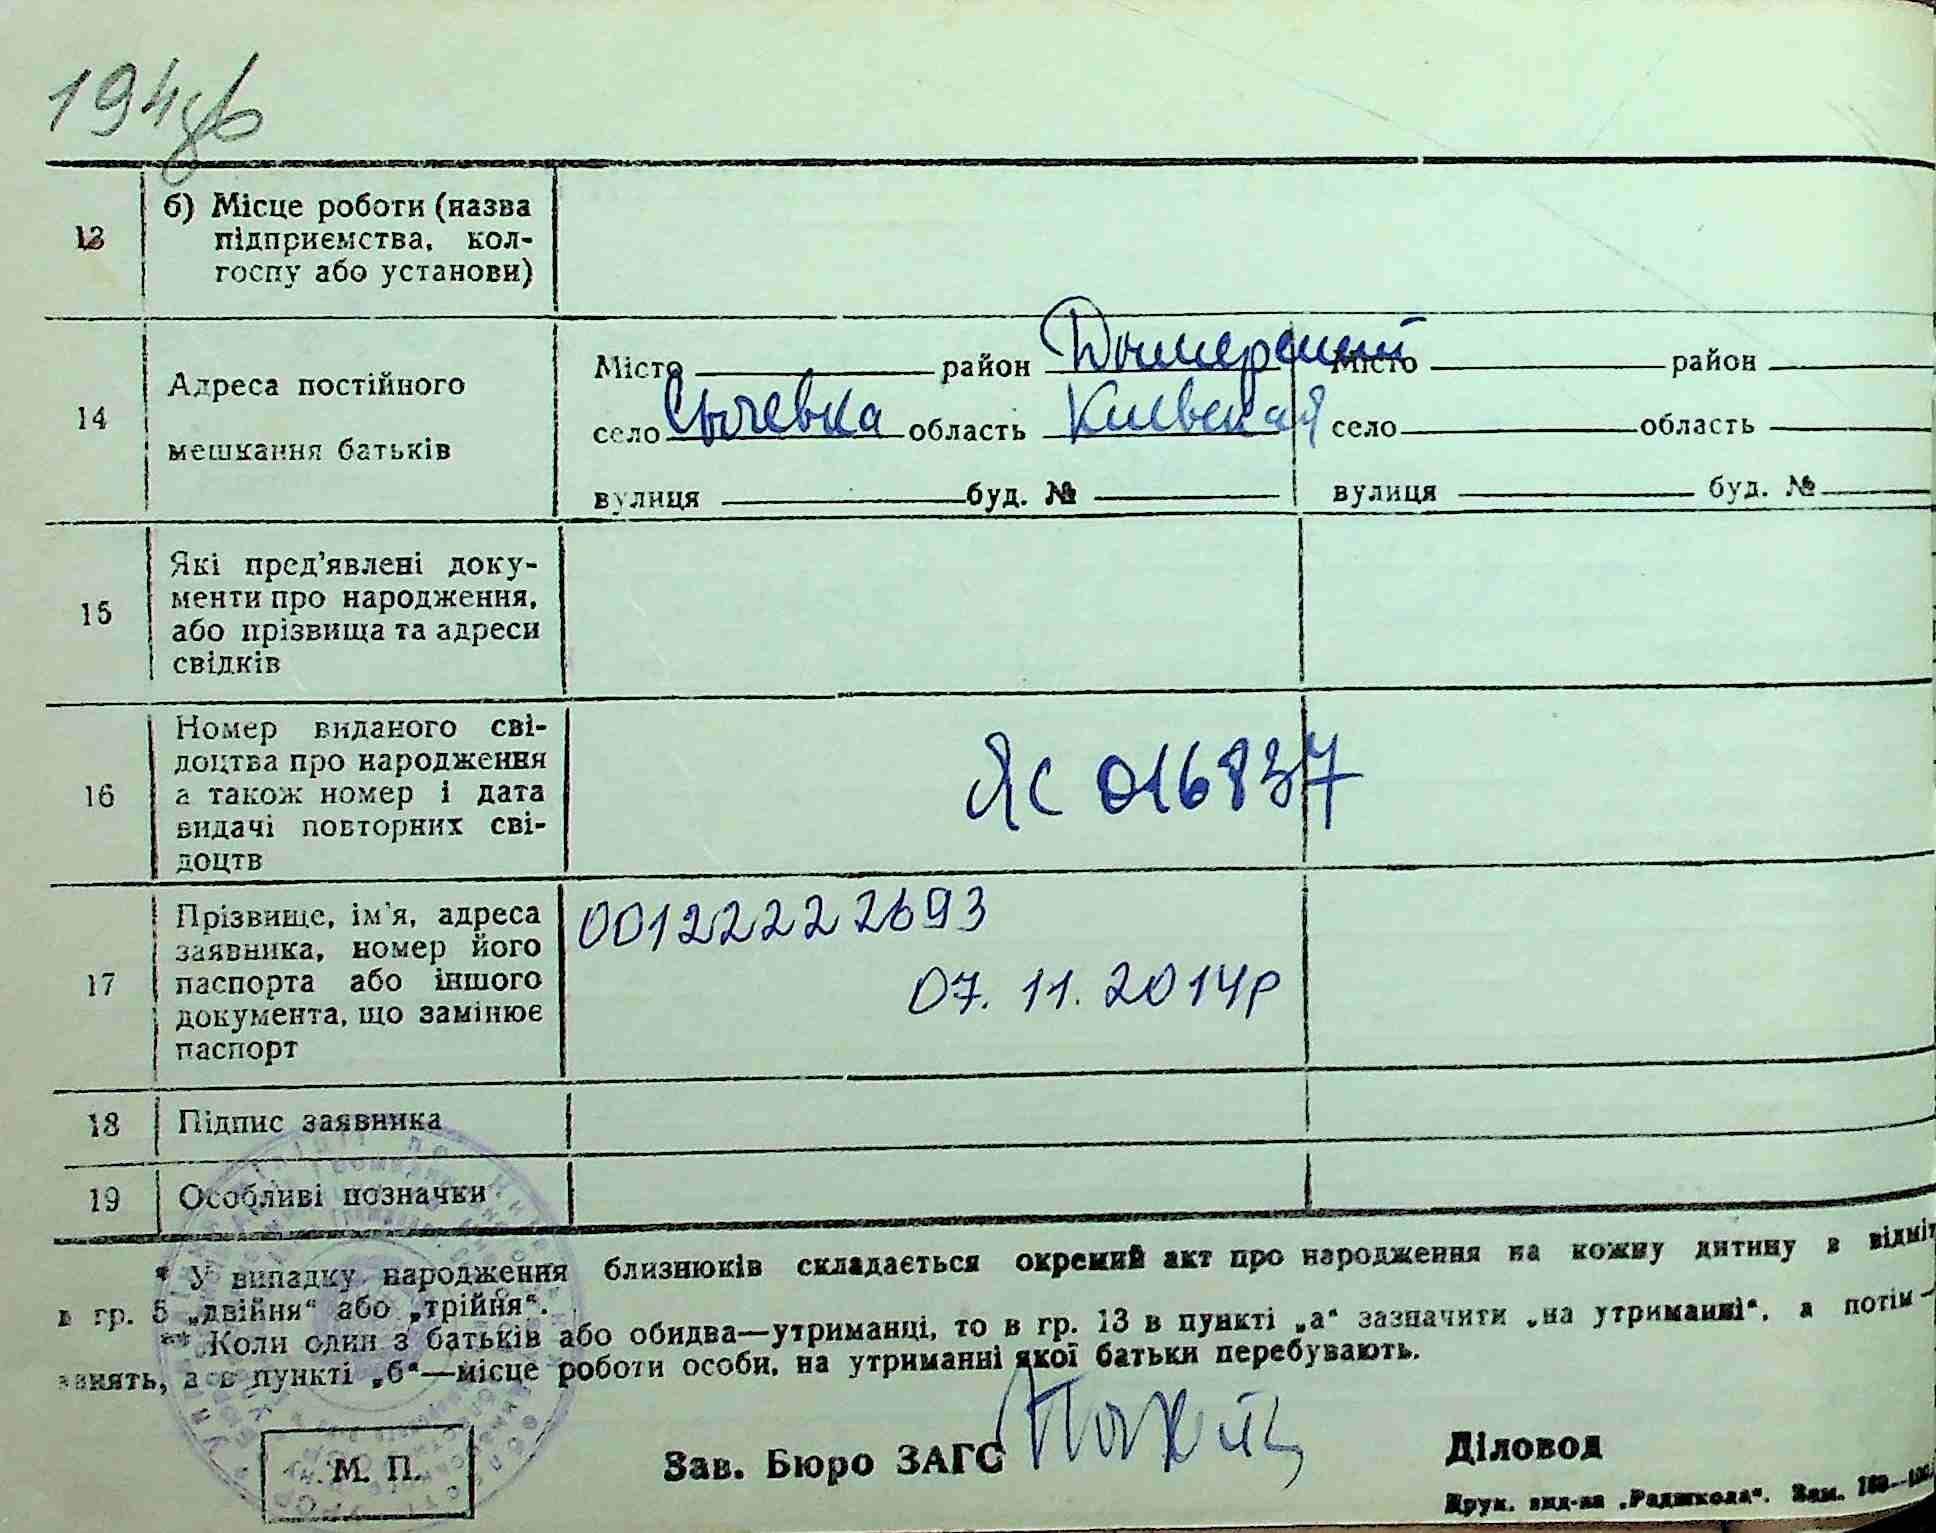 194зв
13
б) Місце роботи (назва
підприємства, кол-
госпу або установи)
14
Адреса постійного
мешкання батьків
Місто район Дымерский
село Сычевка область Киевская
вулиця буд. №
Місто район
село область
вулиця буд. №
15
Які пред'явлені доку-
менти про народження,
або прізвища та адреси
свідків
16
Номер виданого сві-
доцтва про народження
а також номер і дата
видачі повторних сві-
доцтв
ЯС 016837
17
Прізвище, ім'я, адреса
заявника, номер його
паспорта або іншого
документа, що замінює
паспорт
00122222693
07.11.2014р
18
Підпис заявника
19
Особливі позначки
* У випадку народження близнюків складається окремий акт про народження на кожну дитину з відміт
в гр. 5 „двійня“ або „трійня“.
** Коли один з батьків або обидва—утриманці, то в гр. 13 в пункті „а“ зазначити „на утриманні“, а потім
занять, а в пункті „б“—місце роботи особи, на утриманні якої батьки перебувають.
М. П.
Зав. Бюро ЗАГС
Діловод
Друк. вид-ва „Радшкола“. Зам.